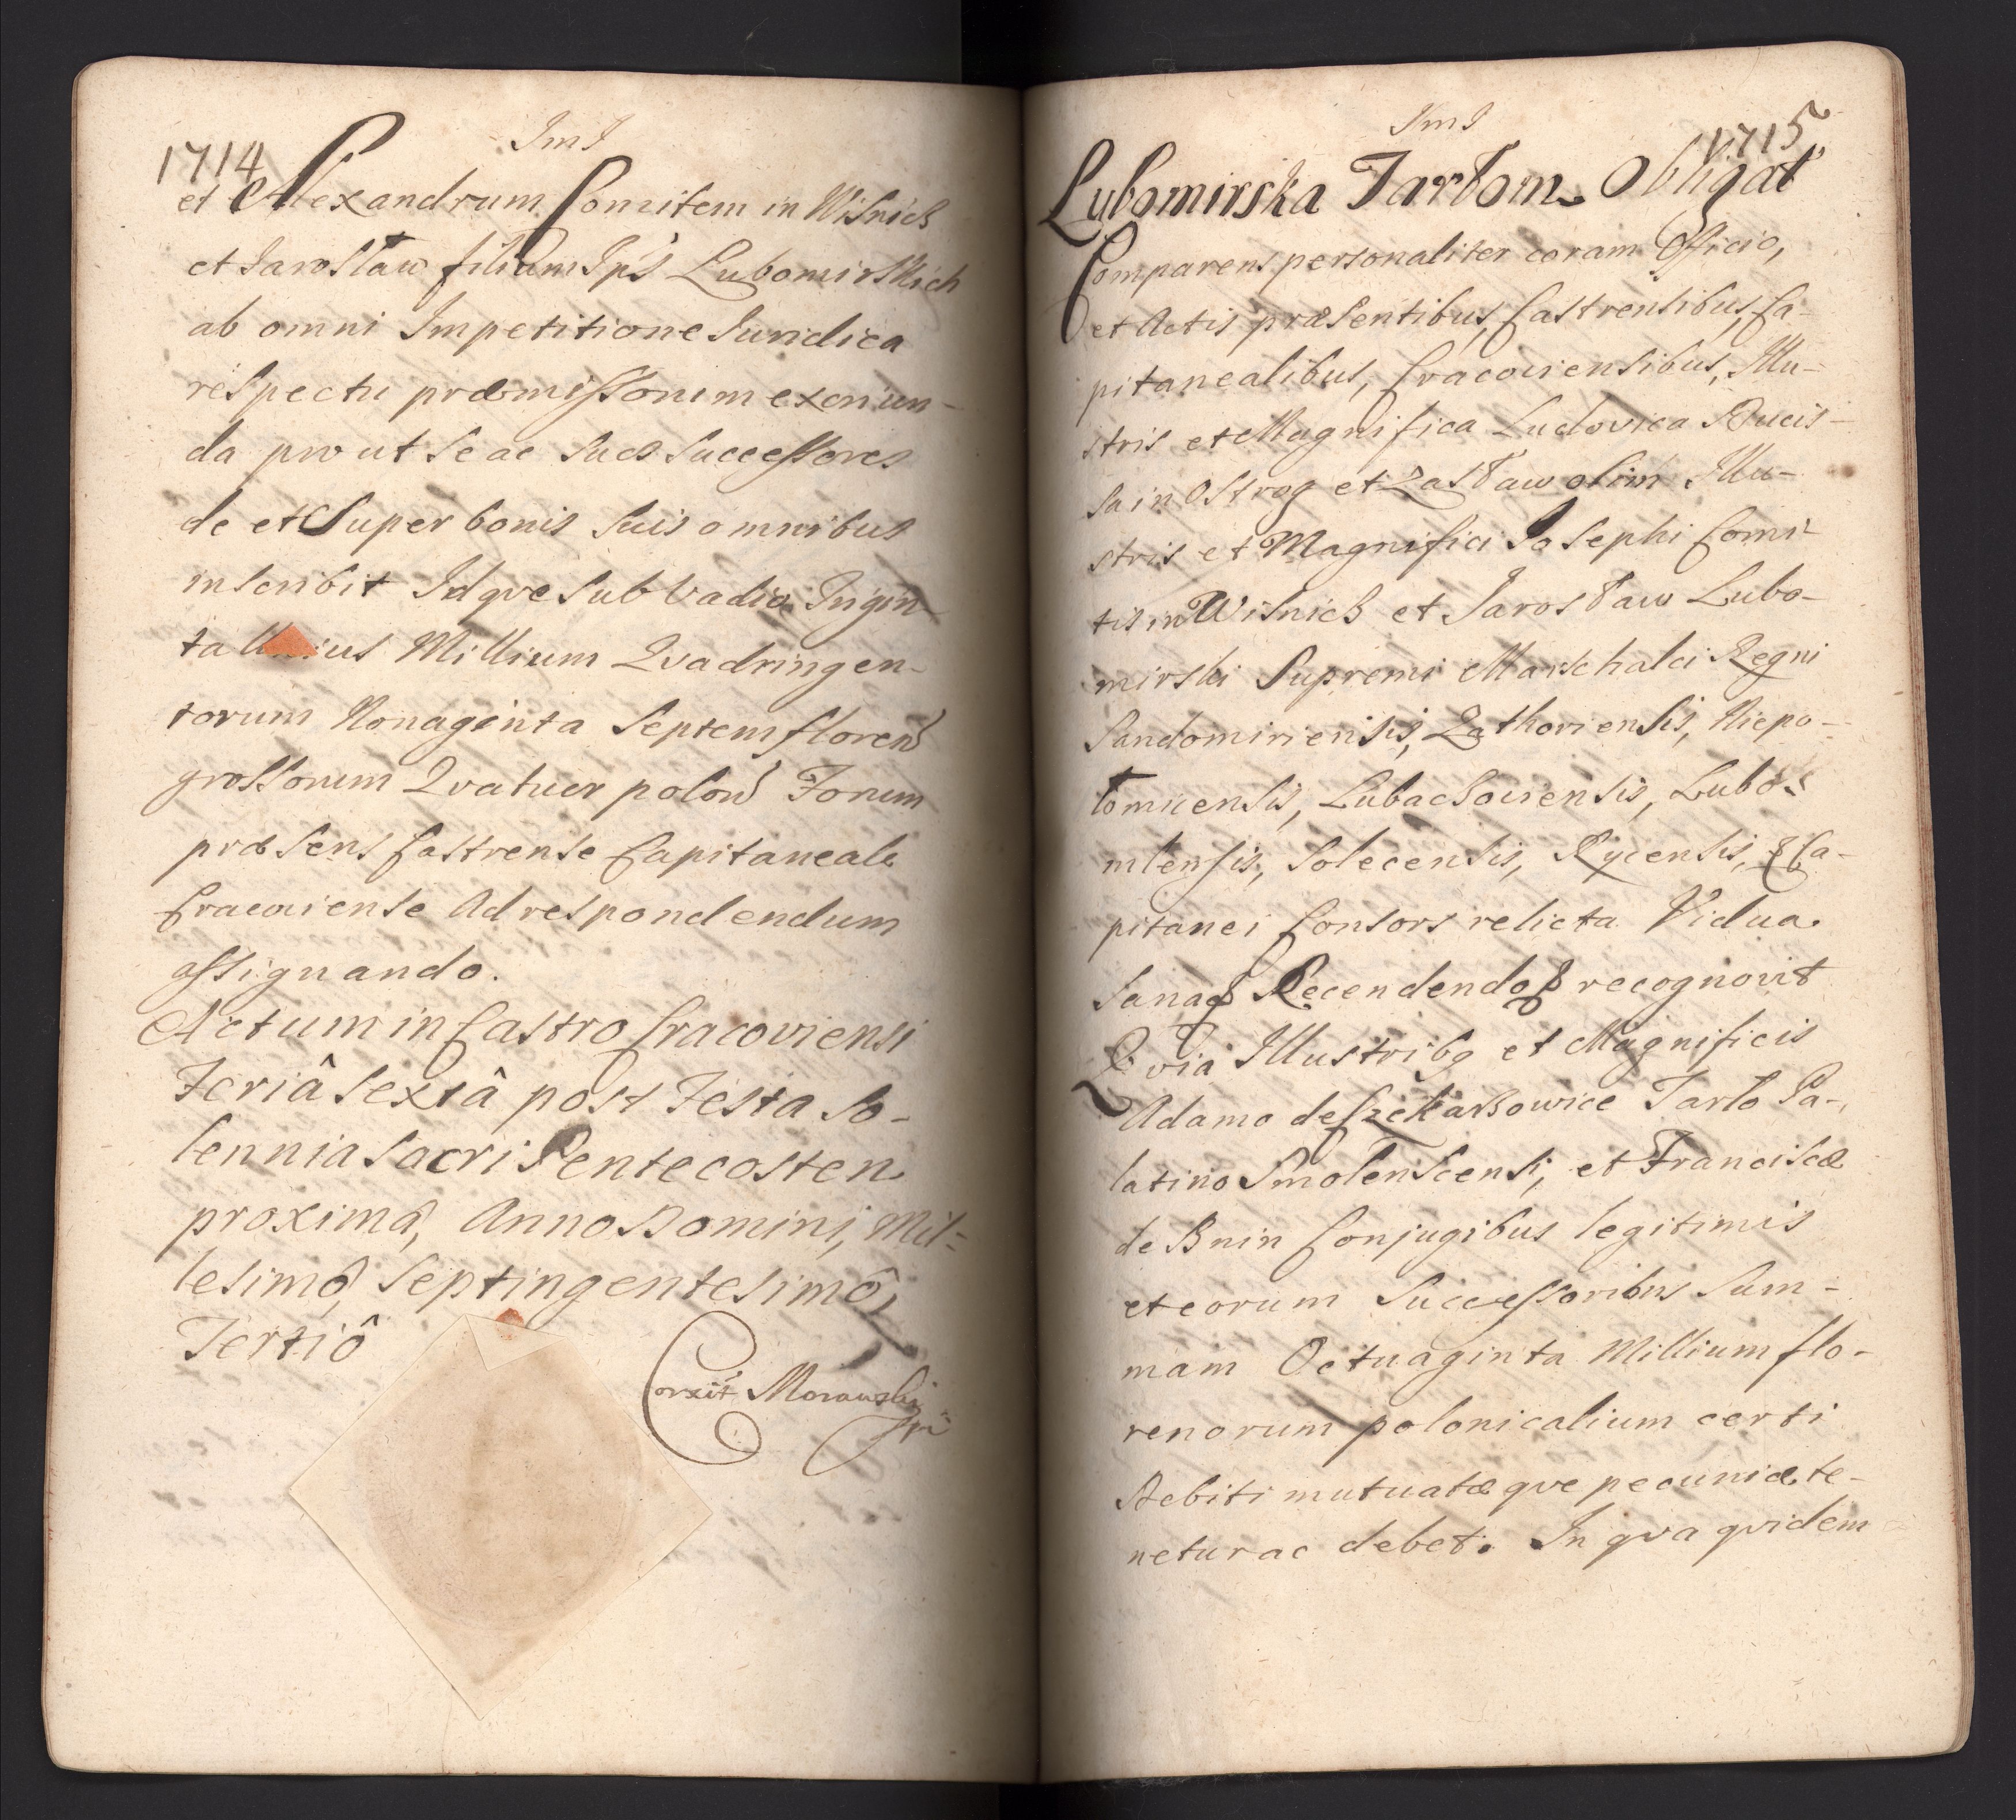 JmJ
1714
et Alexandrum Comitem in Wisnich
et Jarosław filium Ips Lubomirskich
ab omni Impetitione Juridica
respectu præmissorum exoriun-
da prout se ac suos successores
de et super bonis suis omnibus
inscribit Idqve sub Vadio Trigin-
ta Millium Qvadringen-
torum Nonaginta Septem floren
grossorum Qvatuor polon Forum
præsens Castrense Capitaneale
Cracoviense Ad respondendum
assignando.
Actum in Castro Cracoviensi
Feriâ Sextâ post Festa So-
lennia Sacri Pentecosten
proximâ, Anno Domini, Mil=
lesimô Septingentesimô,
Tertiô
Corxit Morawski
JmJ
1715
Lubomirska Tarłom Obligat
Comparens personaliter coram Officio,
et Actis præsentibus, Castrensibus, Ca-
pitanealibus, Cracoviensibus, Illu-
stris et Magnifica Ludovica Ducis-
sa in Ostrog et Zasław olim Illu-
stris et Magnifici Josephi Comi-
tis in Wisnich et Jarosław Lubo-
mirski Supremi Marschalci Regni
Sandomiriensis, Zathoriensis, Niepo-
łomicensis, Lubachoviensis, Lubo-
mlensis, Solecensis, Rycensis, & Ca-
pitanei Consors relicta Vidua
Sana & Recendendo & recognovit
Qvia Illustribq et Magnificis
Adamo de Czekarzowice Tarło Pa-
latino Smolenscensi, et Franciscæ
de Bnin Conjugibus legitimis
et eorum Successoribus Sum-
mam Octuaginta Millium flo-
renorum polonicalium certi
Debiti mutuatæqve pecuniæ te-
netur ac debet. In qva qvidem